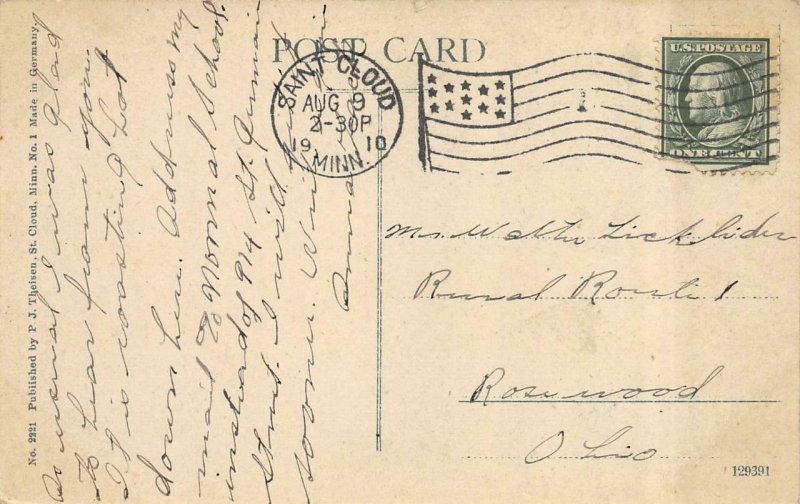 No. 2221 Published by P. J. Theisen, St. Cloud, Minn. No. 1 Made in Germany.
POST CARD
As usual I was glad
to hear from you
It is roasting hot
down here. Address my
mail to Normal School
instead of 914 St. Germain
Street. I will
sooner. Write
Anna
SAINT CLOUD
AUG 9
2-30P
1910
MINN.
U.S. POSTAGE
ONE CENT
Mr. Walter Licklider
Rural Route 1
Rosewood
Ohio
129391